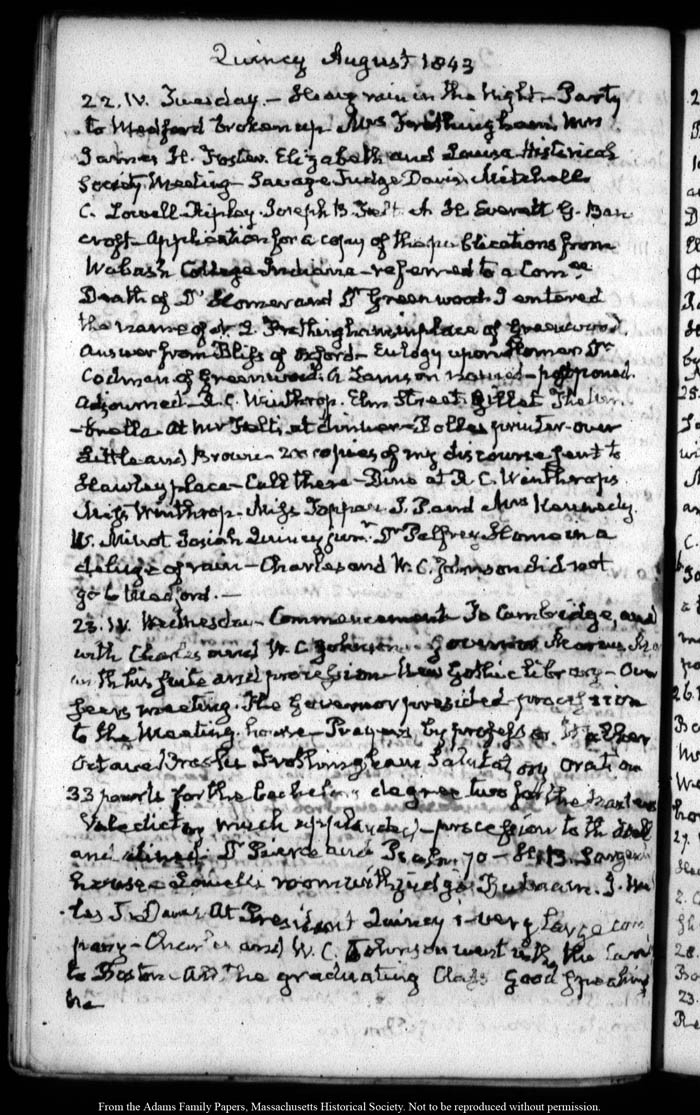 Quincy August 1843
22. IV. Tuesday. – Heavy rain in the Night – Party
to Medford broken up Mrs Frothingham Mrs
James H. Foster. Elizabeth and Louisa Historical
Society Meeting – Savage Judge Davis Mitchell
C. Lowell Ripley Joseph B. Felt A H Everett G. Ban
croft – Application for a copy of the publications from
Wabash College Indiana – referred to a Comee
Death of Dr Homer and Dr Greenwood. I entered
the name of N. L. Frothingham in place of Greenwood.
Answer from Bliss of Oxford – Eulogy upon Homer Dr
Codman of Greenwood. A Lamson – postponed.
Adjourned – R. C. Winthrop. Elm Street Gillet
-brella. At Mr Felt's at dinner – Bolles printer – over
Little and Brown – 20 copies of my discourse sent to
Hawley place – Call there – Dine at R C. Winthrop's
Miss Winthrop. Miss Tappan J. P. and Mrs Kennedy.
W. Minot Josiah Quincy junr. Dr Palfrey. Home in a
deluge of rain – Charles and W. C. Johnson did not
go to Medford. —
23. IV. Wednesday – Commencement To Cambridge, and
with Charles and W. C Johnson – Governor Marcus Mo
with his suite and procession – New Gothic library – Over
seers meeting. The Governor presided procession
to the Meeting house – Prayers by professor
Octavius Brooks Frothingham Salutatory oration
33 parts for the bachelors degree two for the masters
Valedictory much applauded – procession to the Hall
and dined. Dr Pierce and Psalm. 70 –
house – Lowell's room with judge Putnam. J.
J. Davis At President Quincy's – very large com
pany – Charles and W. C. Johnson went with the
to Boston All the graduating Class Good speaking